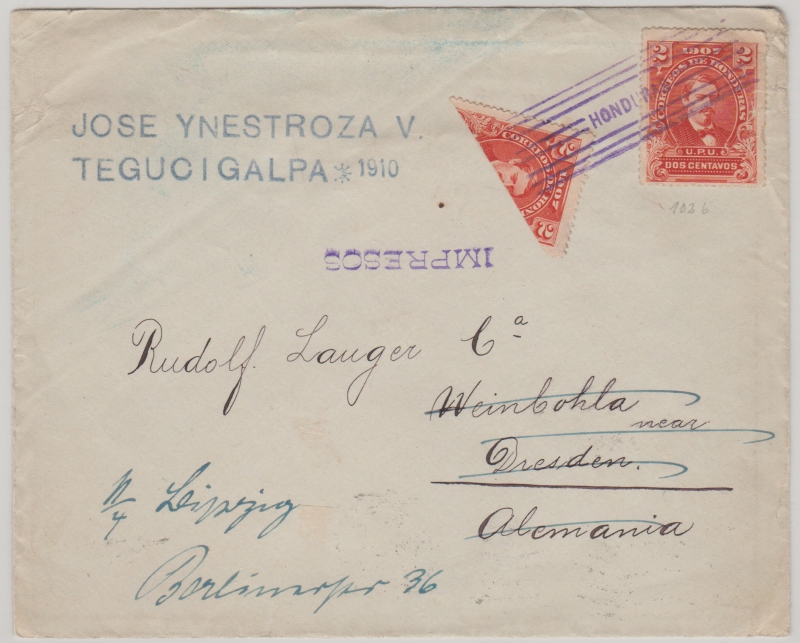 JOSE YNESTROZA V.
TEGUCIGALPA * 1910
HONDU
2 1907 2
CORREOS DE HONDURAS
U.P.U.
DOS CENTAVOS
2 1907 2
CORREOS DE HON
1026
IMPRESOS
Rudolf. Lauger Cª
Weinbohla
near
Dresden.
Alemania
Leipzig
Berlinerstr 36